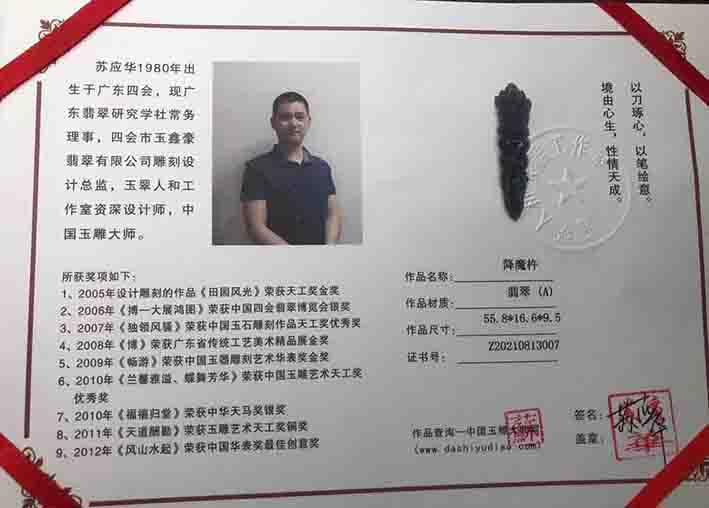 苏应华1980年出
生于广东四会，现广
东翡翠研究学社常务
理事，四会市玉鑫豪
翡翠有限公司雕刻设
计总监，玉翠人和工
作室资深设计师，中
国玉雕大师。
以刀琢心，以笔绘意。
境由心生，性情天成。
所获奖项如下：
1、2005年设计雕刻的作品《田园风光》荣获天工奖金奖
2、2006年《搏一大展鸿图》荣获中国四会翡翠博览会银奖
3、2007年《独领风骚》荣获中国玉石雕刻作品天工奖优秀奖
4、2008年《博》荣获广东省传统工艺美术精品展金奖
5、2009年《畅游》荣获中国玉器雕刻艺术华表奖金奖
6、2010年《兰馨雅溢、蝶舞芳华》荣获中国玉雕艺术天工奖
优秀奖
7、2010年《福禧归堂》荣获中华天马奖银奖
8、2011年《天道酬勤》荣获玉雕艺术天工奖铜奖
9、2012年《风山水起》荣获中国华表奖最佳创意奖
作品名称： 降魔杵
作品材质： 翡翠（A)
作品尺寸： 55.8*16.6*9.5
证书号： Z20210813007
作品查询一中国玉雕大师网
(www.dashiyudiao.com)
签名：
盖章：